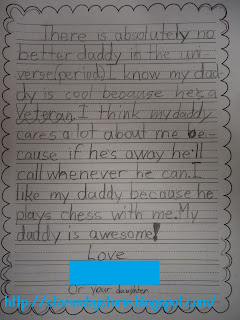 There is absolutely no
better daddy in the uni-
verse(period). I know my dad-
dy is cool because he's a
Veteran. I think my daddy
cares a lot about me be-
cause if he's away he'll
call whenever he can. I
like my daddy because he
plays chess with me. My
daddy is awesome!
Love
Or, your daughter